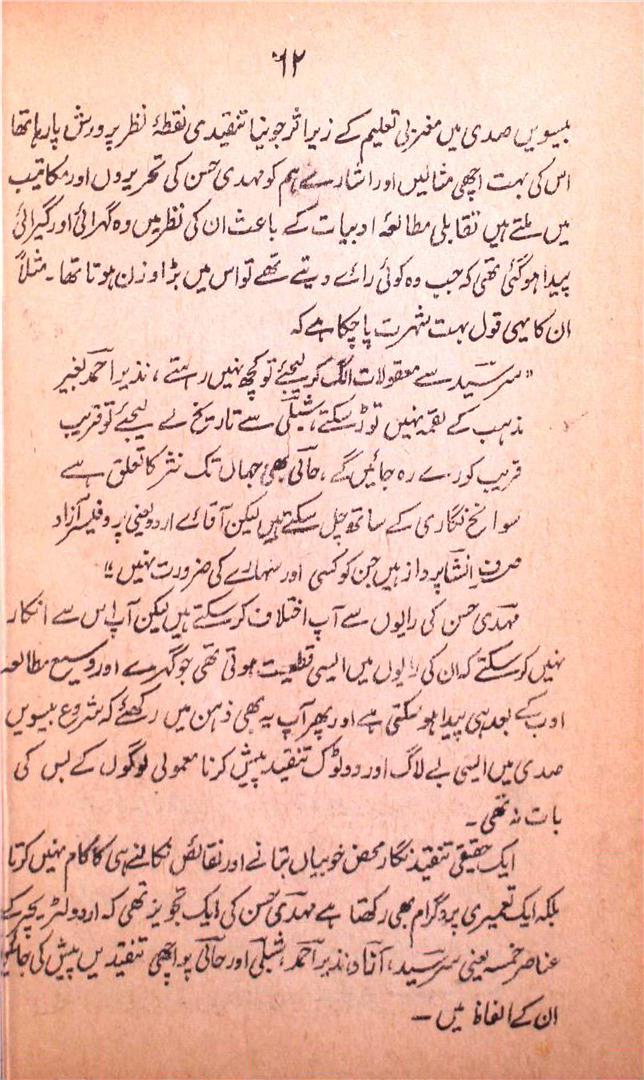 ۶۲
بیسویں صدی میں مغربی تعلیم کے زیر اثر جو نیا تنقیدی نقطۂ نظر پرورش پا رہا تھا
اس کی بہت اچھی مثالیں اور اشارے ہم کو مہدی حسن کی تحریروں اور مکاتیب
میں ملتے ہیں تقابلی مطالعۂ ادبیات کے باعث ان کی نظر میں وہ گہرائی اور گیرائی
پیدا ہو گئی تھی کہ جب وہ کوئی رائے دیتے تھے تو اس میں بڑا وزن ہوتا تھا۔ مثلاً
ان کا یہی قول بہت شہرت پا چکا ہے کہ
"سرسید سے معقولات الگ کر لیجئے تو کچھ نہیں رہتے، نذیر احمد بغیر
مذہب کے لقمہ نہیں توڑ سکتے، شبلی سے تاریخ لے لیجئے تو قریب
قریب کورے رہ جائیں گے، حالی بھی جہاں تک نثر کا تعلق ہے
سوانح نگاری کے ساتھ چل سکتے ہیں لیکن آقائے اردو یعنی پروفیسر آزاد
صرف انشا پرداز ہیں جن کو کسی اور سہارے کی ضرورت نہیں"
مہدی حسن کی رایوں سے آپ اختلاف کر سکتے ہیں لیکن آپ اس سے انکار
نہیں کر سکتے کہ ان کی رایوں میں ایسی قطعیت ہوتی تھی جو گہرے اور وسیع مطالعہ
ادب کے بعد ہی پیدا ہو سکتی ہے اور پھر آپ یہ بھی ذہن میں رکھئے کہ شروع بیسویں
صدی میں ایسی بے لاگ اور دو ٹوک تنقید پیش کرنا معمولی لوگوں کے بس کی
بات نہ تھی۔
ایک حقیقی تنقید نگار محض خوبیاں بتانے اور نقائص نکالنے ہی کا کام نہیں کرتا
بلکہ ایک تعمیری پروگرام بھی رکھتا ہے مہدی حسن کی ایک تجویز تھی کہ اردو لٹریچر کے
عناصر خمسہ یعنی سرسید، آزاد، نذیر احمد، شبلی اور حالی پر اچھی تنقیدیں پیش کی
ان کے الفاظ میں ـ